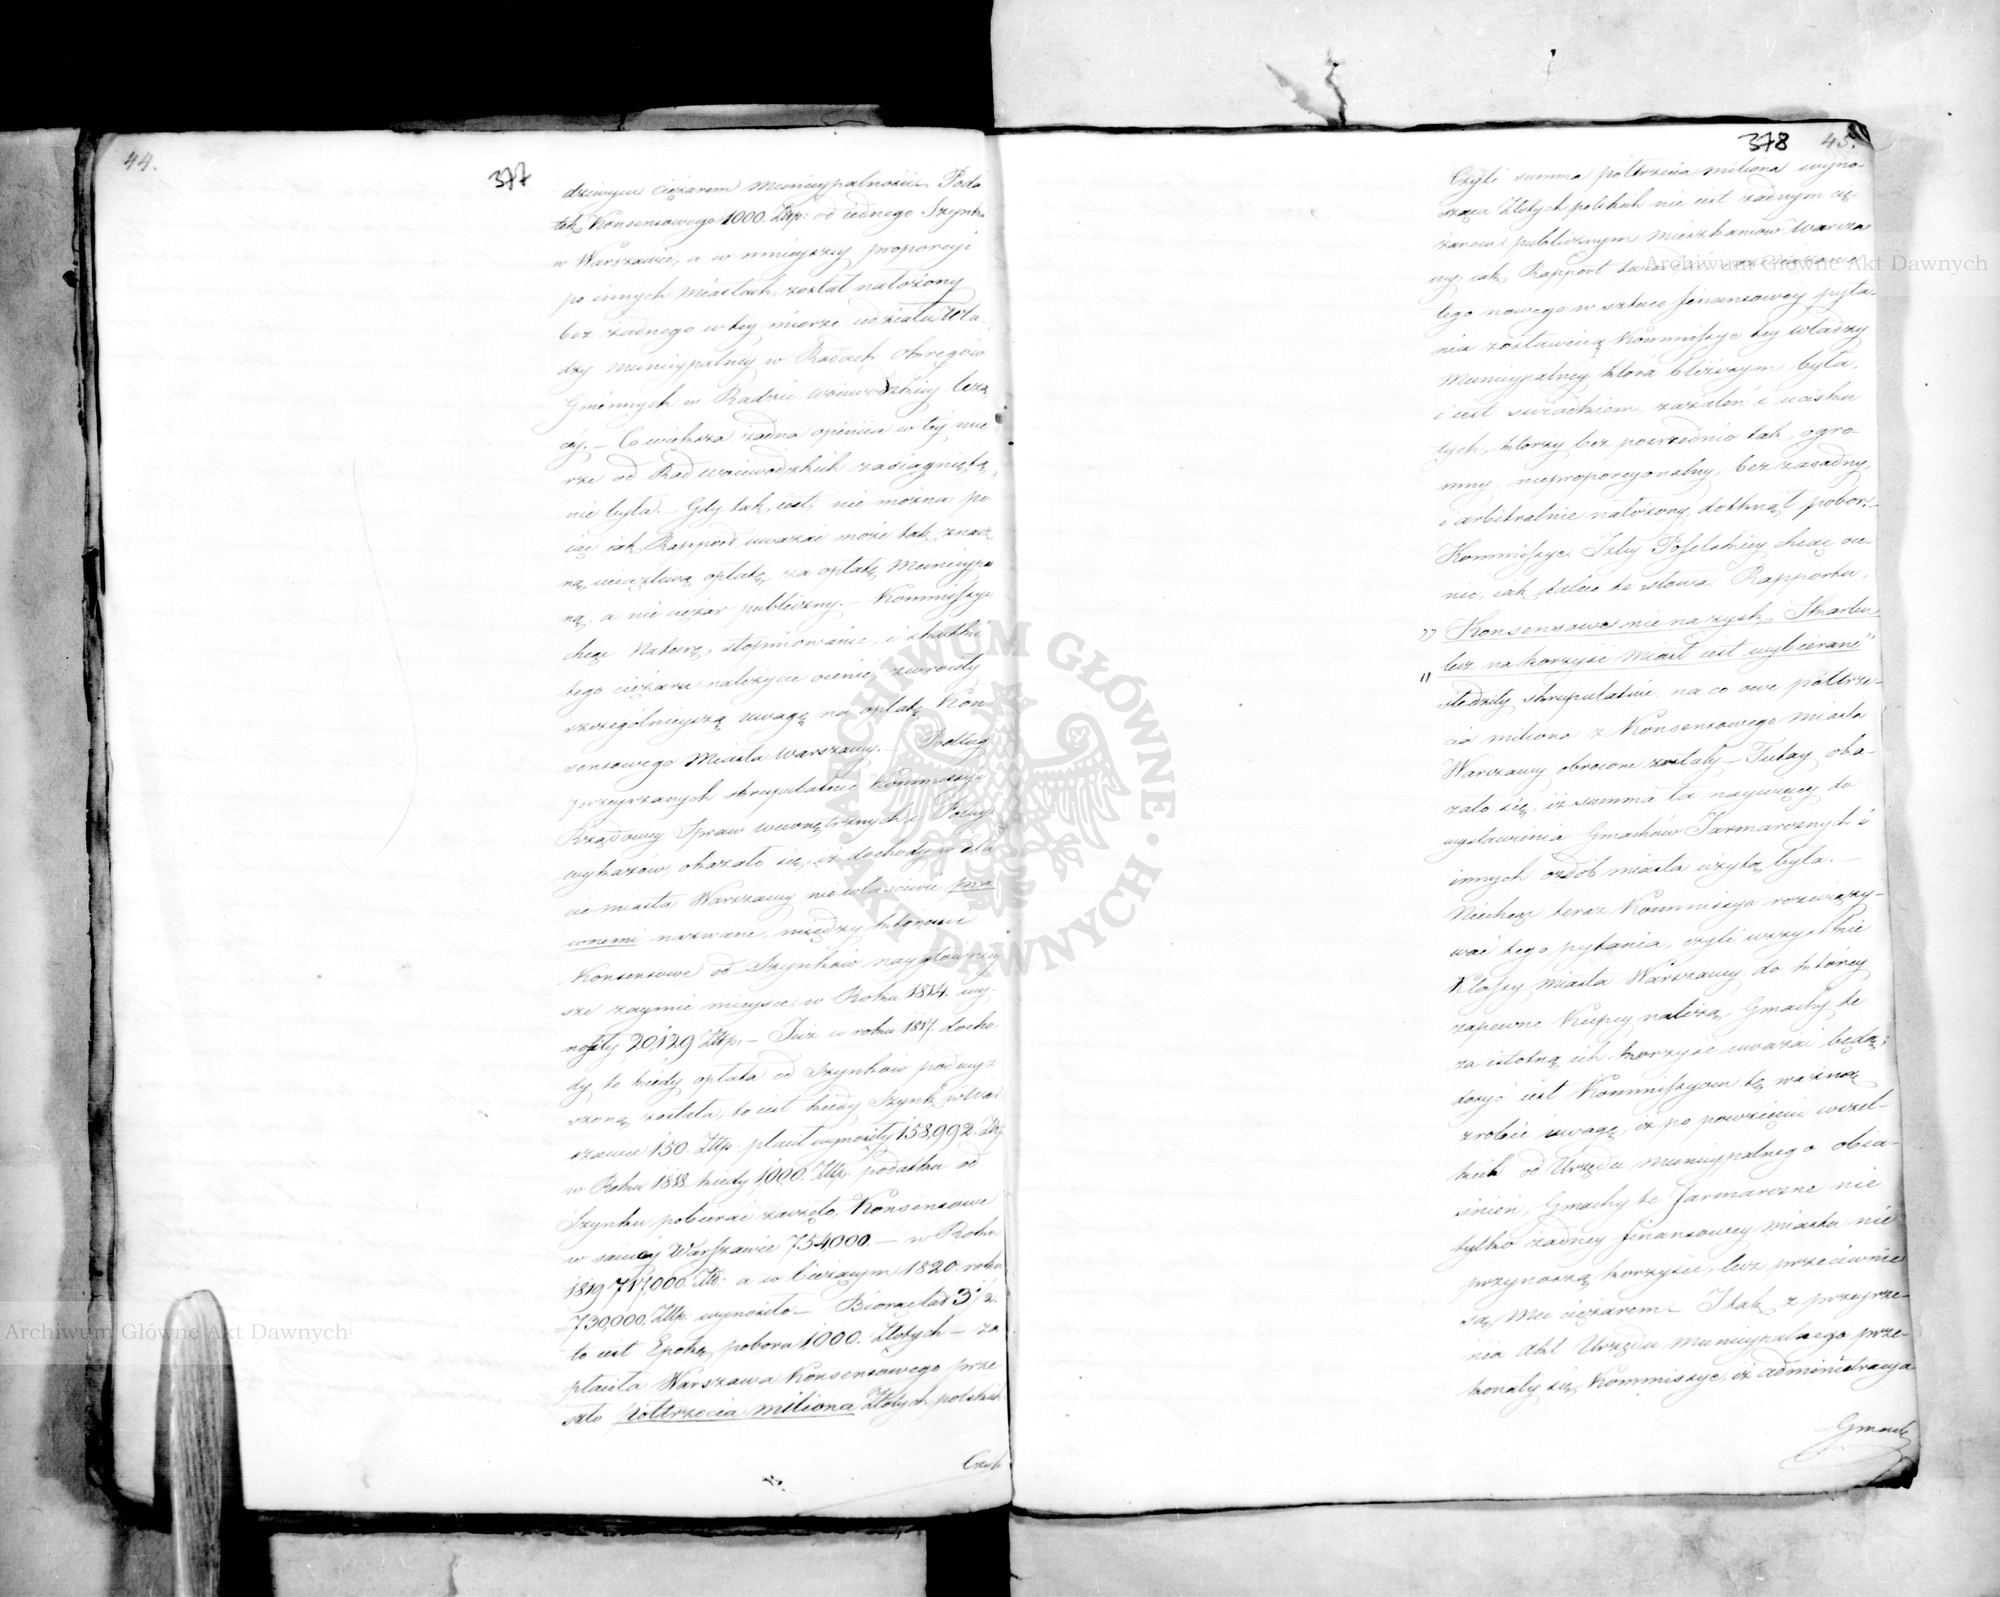 44.
377
dziwym ciężarem Municypalności. Poda
tek Konsensowego 1000. Złłp: od iednego Szynku
w Warszawie, a w mnieyszey proporcyi
po innych Miastach, został nałożony
bez żadnego w tey mierze udziału Wła-
dzy Municypalney w Radach Okręgów
Gminnych w Radzie Woiewodzkiey leżą
cey. – Co większa żadna opiniia w tey mie
rze od Rad Woiewodzkich zasiągniętą
nie była. – Gdy tak iest, nie można po
iąć iak Rapport uważać może tak znacz
ną uciążliwą opłatę, za opłatę Municypal
ną, a nie ciężar publiczny. – Kommissye
chcąc Naturę, stopniowanie, i skutki
tego ciężaru należycie ocenić, zwróciły
szczególnieyszą uwagę na opłatę Kon
sensowego Miasta Warszawy. – Podług
przeyrzanych skrupulatnie Kommissyi
Rządowey Spraw wewnętrznych i Policyi
wykazów, okazało się, iż dochody
cie miasta Warszawy niewłaściwie pra
wnemi nazwane, między któremi
Konsensowe od Szynków naygłówniey
sze zaymie mieysce w Roku 1814. wy-
nosiły 20,129 Złłp. – Już w roku 1817. docho-
dy, te kiedy opłata od Szynków podwyż
szoną została, to iest kiedy Szynk w War
szawie 150. Złłp. płacił wynosiły 158,992. Złłp
w Roku 1818. kiedy 1,000. Złłp. podatku od
Szynku pobierać zaczęto, Konsensowe
w samey Warszawie 754,000. – w Roku
1819 717,000. Złł. a w bieżącym 1820. roku
730,000. Złłp. wynosiło – Biorąc lat 3
to iest Epokę poboru 1000. Złotych – za
płaciła Warszawa Konsensowego prze
szło półtrzecia miliona Złotych polskich.
Czyli
378
45.
Czyli summa półtrzecia miliona wyno-
sząca Złotych polskich nie iest żadnym cię-
żarem publicznym Mieszkańców Warsza
wy, iak Rapport
tego nowego w sztuce finansowey pyta-
nia zostawuią Kommissye tey Władzy
Municypalney która bliższym była,
i iest świadkiem, zażaleń i ucisku
tych, których bezpośrednio tak ogro-
mny, nieproporcyonalny, bezzasadny,
i arbitralnie nałożony dotknął pobór. –
Kommissye Izby Poselskiey chcąc oce-
nić, iak dalece te słowa Rapportu,
„ Konsensowe nie na zysk Skarbu
„ lecz na korzyść Miast iest wybierane"
śledziły skrupulatnie, na co owe półtrze-
cia miliona z Konsensowego Miasta
Warszawy obrócone zostały – Tutay oka-
zało się, iż summa ta naywięcey do
wystawienia Gmachów Jarmarcznych i
innych ozdób miasta użytą była. –
Niechcąc teraz Kommissye rozwiązy-
wać tego pytania, czyli wszystkie
Klassy Miasta Warszawy, do którey
zapewne Kupcy należą, Gmachy te
za istotną ich korzyść uważać będą;
dosyć iest Kommissyom tę ważną
zrobić uwagę, iż po powzięciu wszel-
kich od Urzędu Municypalnego obia-
śnień, Gmachy te Jarmarczne nie
tylko żadney finansowey miastu nie
przynoszą korzyści, lecz przeciwnie
są Mu ciężarem – I tak z przeyrze-
nia Akt Urzędu Municypalnego prze-
konały się Kommissye, iż administracya
Gmachu
Archiwum Główne Akt Dawnych
Archiwum Główne Akt Dawnych
ARCHIWUM GŁÓWNE AKT DAWNYCH